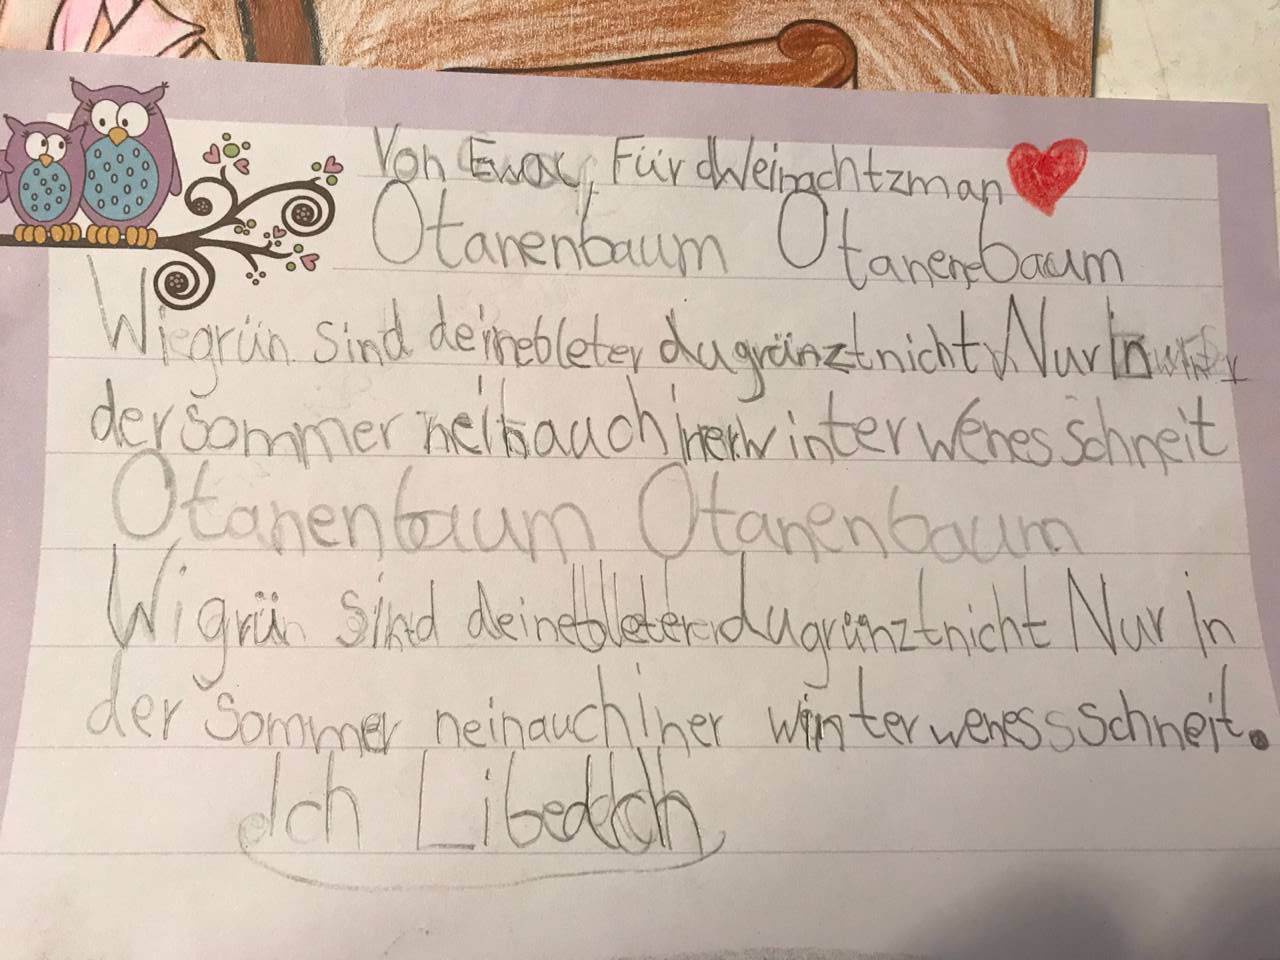 Von Ewa, Für dWeinachtzman
Otanenbaum Otanenebaum
Wiegrün sind deinebleter du gränzt nicht Nur in
der sommer nein auch iner winter wenes schneit
Otanenbaum Otanenbaum
Wi grün sind deinebleter du gränzt nicht Nur in
der sommer nein auch iner winter weness schneit.
Ich Libedich